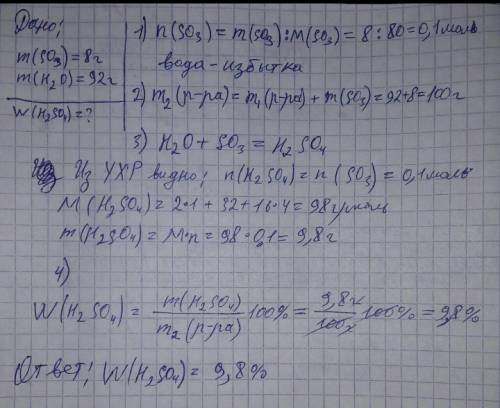 Дано:
m(SO₃)=8г
m(H₂O)=92г
W(H₂SO₄)=?
1) n(SO₃)=m(SO₃):M(SO₃)=8:80=0,1моль
вода-избытка
2) m₂(р-ра)=m₁(р-ра)+m(SO₃)=92+8=100г
3) H₂O+SO₃=H₂SO₄
Из УХР видно: n(H₂SO₄)=n(SO₃)=0,1моль
M(H₂SO₄)=2·1+32+16·4=98г/моль
m(H₂SO₄)=M·n=98·0,1=9,8г
4)
W(H₂SO₄)=m(H₂SO₄)/m₂(р-ра)100%=9,8г/100г100%=9,8%
Ответ: W(H₂SO₄)=9,8%